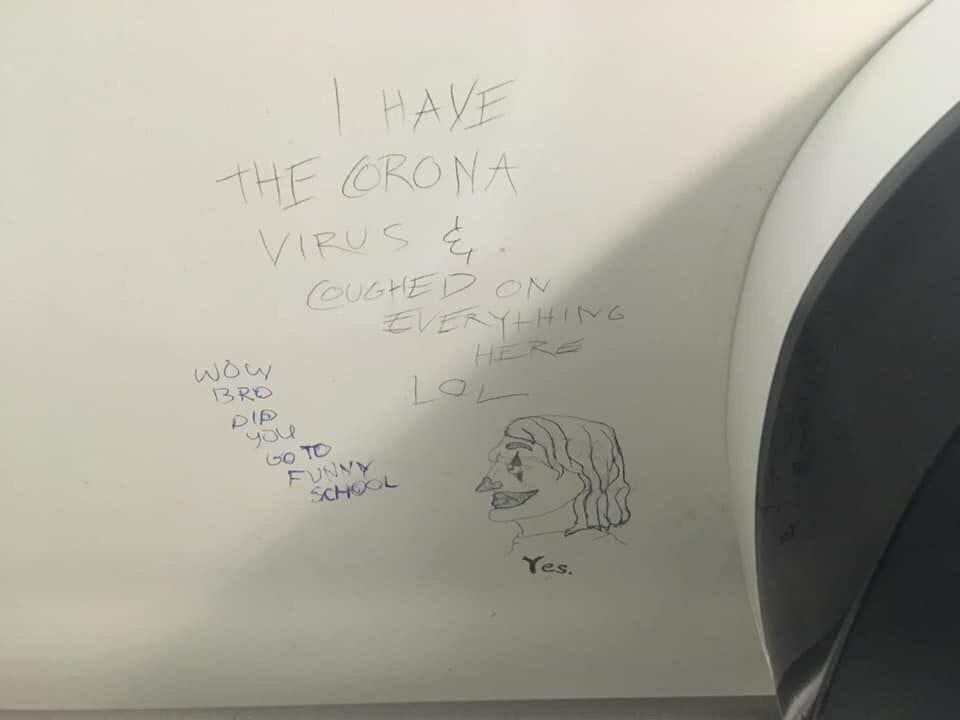 I HAVE
THE CORONA
VIRUS &
COUGHED ON
EVERYTHING
HERE
LOL
WOW
BRO
DID
YOU
GO TO
FUNNY
SCHOOL
Yes.